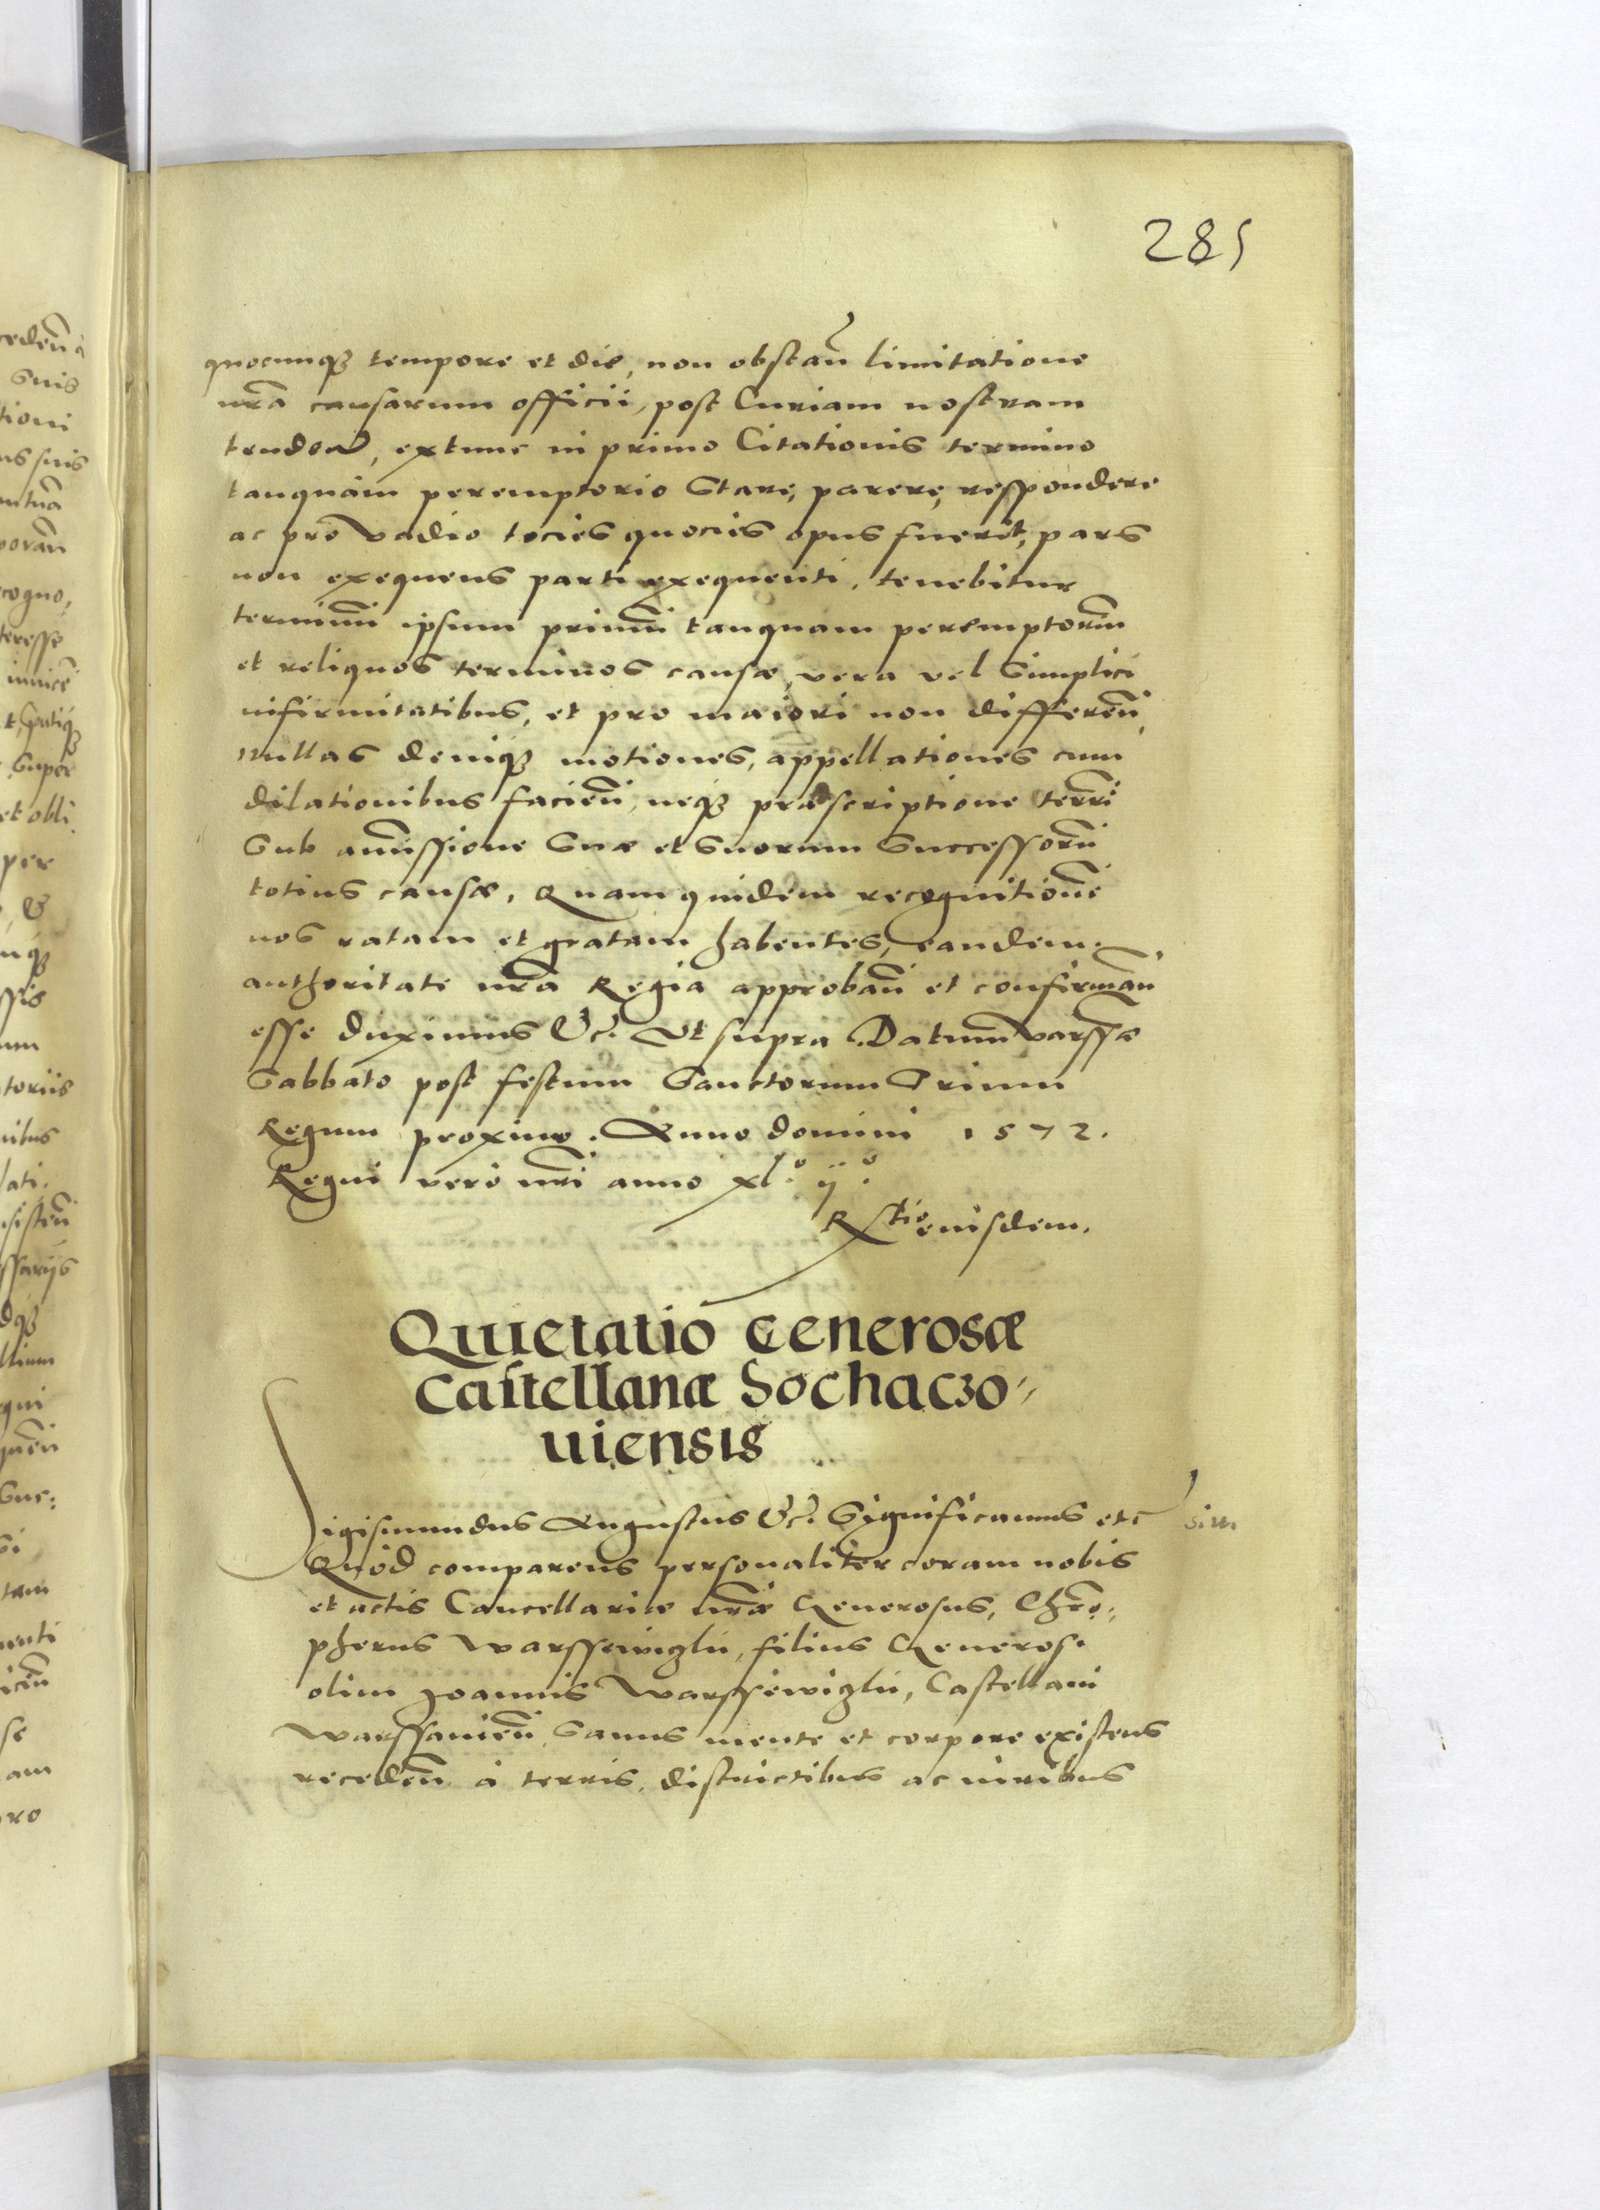 285
quocunq₃ tempore et die, non obstan̄ limitatione
nrā causarum officii, post Curiam nostram
extunc in primo Citationis termino
tanquam peremptorio stare, parere, respondere
ac pro vadio tocies quocies opus fuerit, pars
non exequens parti exequenti, tenebitur
terminū ipsum primū tanquam peremptoriū
et reliquos terminos causæ, vera vel simplici
infirmitatibus, et pro maiori non differen̄
nullas deniq₃ motiones, appellationes cum
dilationibus facien̄, neq₃ præscriptione terrrī
sub amissione suæ et suorum successorū
totius causæ, Quam quidem recognitionē
nos ratam et gratam habentes, eandem
authoritate nrā Regia approban̄ et confirman̄
esse duximus &c. Ut supra Datum Varssæ
Sabbato post festum Sanctorum Trium
Regum proximo. Anno domini 1572.
Regni vero nrī anno xlº. ijº.
Rtio eiusdem.
Quietatio Generosæ
Castellanæ Sochaczo„
uiensis
Sigismundus Augustus &c. Significamus etc
Quod comparens personaliter coram nobis
et actis Cancellariæ nrāe Generosus, Chrō„
pherus Warssewiczki, filius Generosi
olim Joannis Warssewiczki, Castellani
Warssavien̄ sanus mente et corpore existens
receden̄ à terris, districtibus ac iuribus